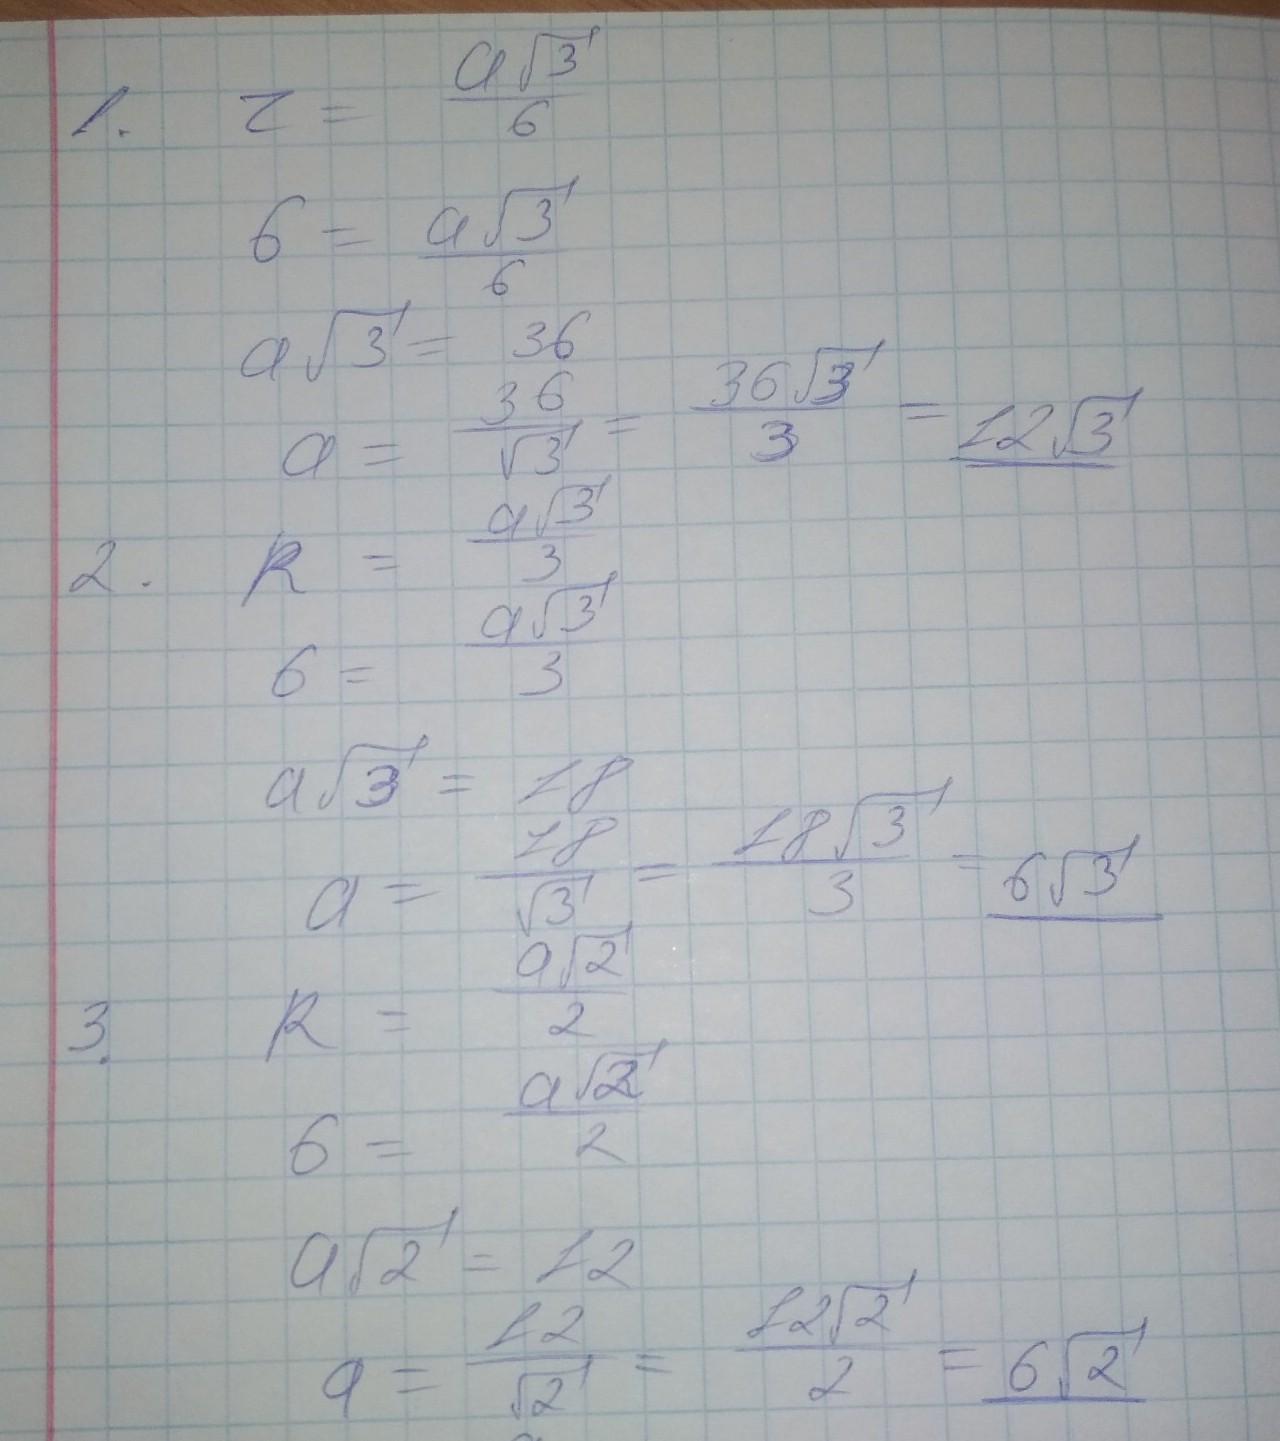 1. r = a√3/6
6 = a√3/6
a√3 = 36
a = 36/√3 = 36√3/3 = 12√3
2. R = a√3/3
6 = a√3/3
a√3 = 18
a = 18/√3 = 18√3/3 = 6√3
3. R = a√2/2
6 = a√2/2
a√2 = 12
a = 12/√2 = 12√2/2 = 6√2